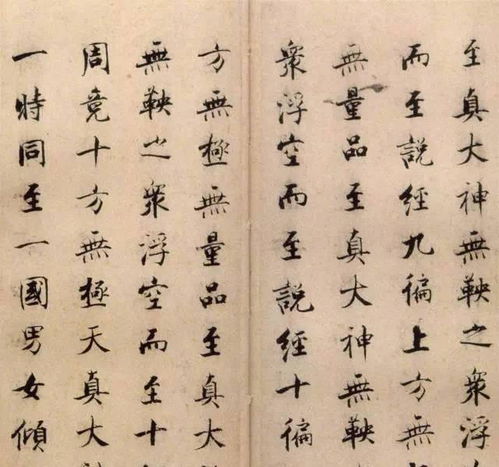 至真大神無鞅之衆浮
而至說經九徧上方無
無量品至真大神無鞅
衆浮空而至說經十徧
方無極無量品至真大
無鞅之衆浮空而至十
周竟十方無極天真大
一時同至一國男女傾